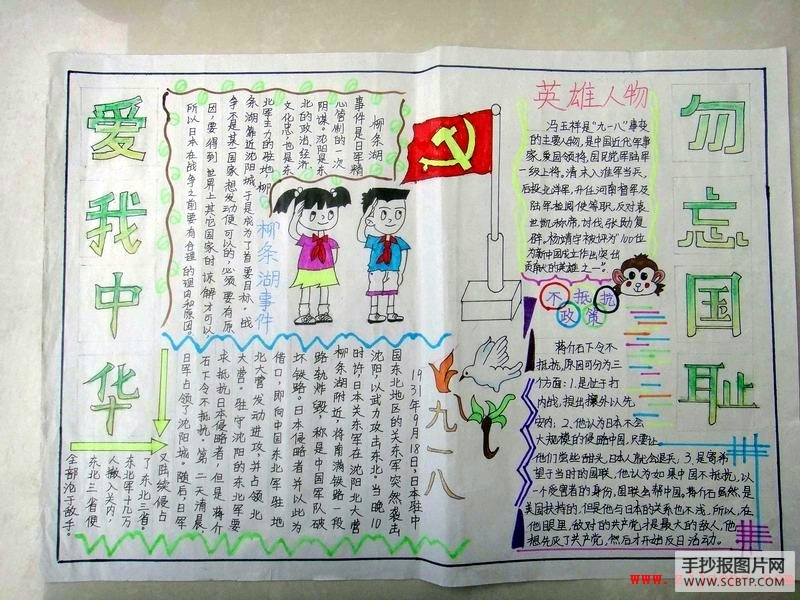 爱我中华
柳条湖
事件是日军精
心管制的一次
阴谋。沈阳是东
北的政治,经济,
文化忠,也是东
北军主力的驻地,柳
条湖靠近沈阳城,于是成为了首要目标。战
争不是某一国家想发动便可以的,必须要有原
因,要得到世界上其它国家的谅解才可以
所以日本在战争之前要有合理的理由和原因。
柳条湖事件
1931年9月18日,日本驻中
国东北地区的关东军突然袭击
沈阳,以武力攻击东北。当晚10
时许,日本关东军在沈阳北大营
柳条湖附近,将南满铁路一段
路轨炸毁,称是中国军队破
坏铁路。日本侵略者并以此为
借口,即向中国东北军驻地
北大营发动进攻,并占领北
大营。驻守沈阳的东北军要
求抵抗日本侵略者,但是蒋介
石下令不抵抗。第二天清晨,
日军占领了沈阳城。随后,日军
又陆续侵占
了东北三省。
东北军十几万
人撤入关内,
东北三省使
全部沦于敌手。
九一八
英雄人物
冯玉祥是“九一八”事变
的主要人物,是中国近代军事
家、爱国领将,国民党军陆军
一级上将,清末入淮军当兵,
后投北洋军,升任河南督军及
陆军检阅使等职,反对袁
世凯称帝,讨伐张勋复
辟。杨靖宇被评为“100位
为新中国成立作出突出
贡献的英雄之一”。
不抵抗
政策
蒋介石下令不
抵抗,原因可分为三
个方面:1.是忙于打
内战,提出攘外以先
安内,2、他认为日本不会
大规模的侵略中国,只要让
他们尝些甜头,日本人就会退兵,3、是寄希
望于当时的国联,他认为如果中国不抵抗,以
一个受害者的身份,国联会帮中国。蒋介石虽然是
美国扶持的,但是他与日本的关系也不浅,所以,在
他眼里,敌对的共产党才是最大的敌人,他
想先灭了共产党,然后才开始反日活动。
勿忘国耻
手抄报图片网
WWW.SCBTP.COM